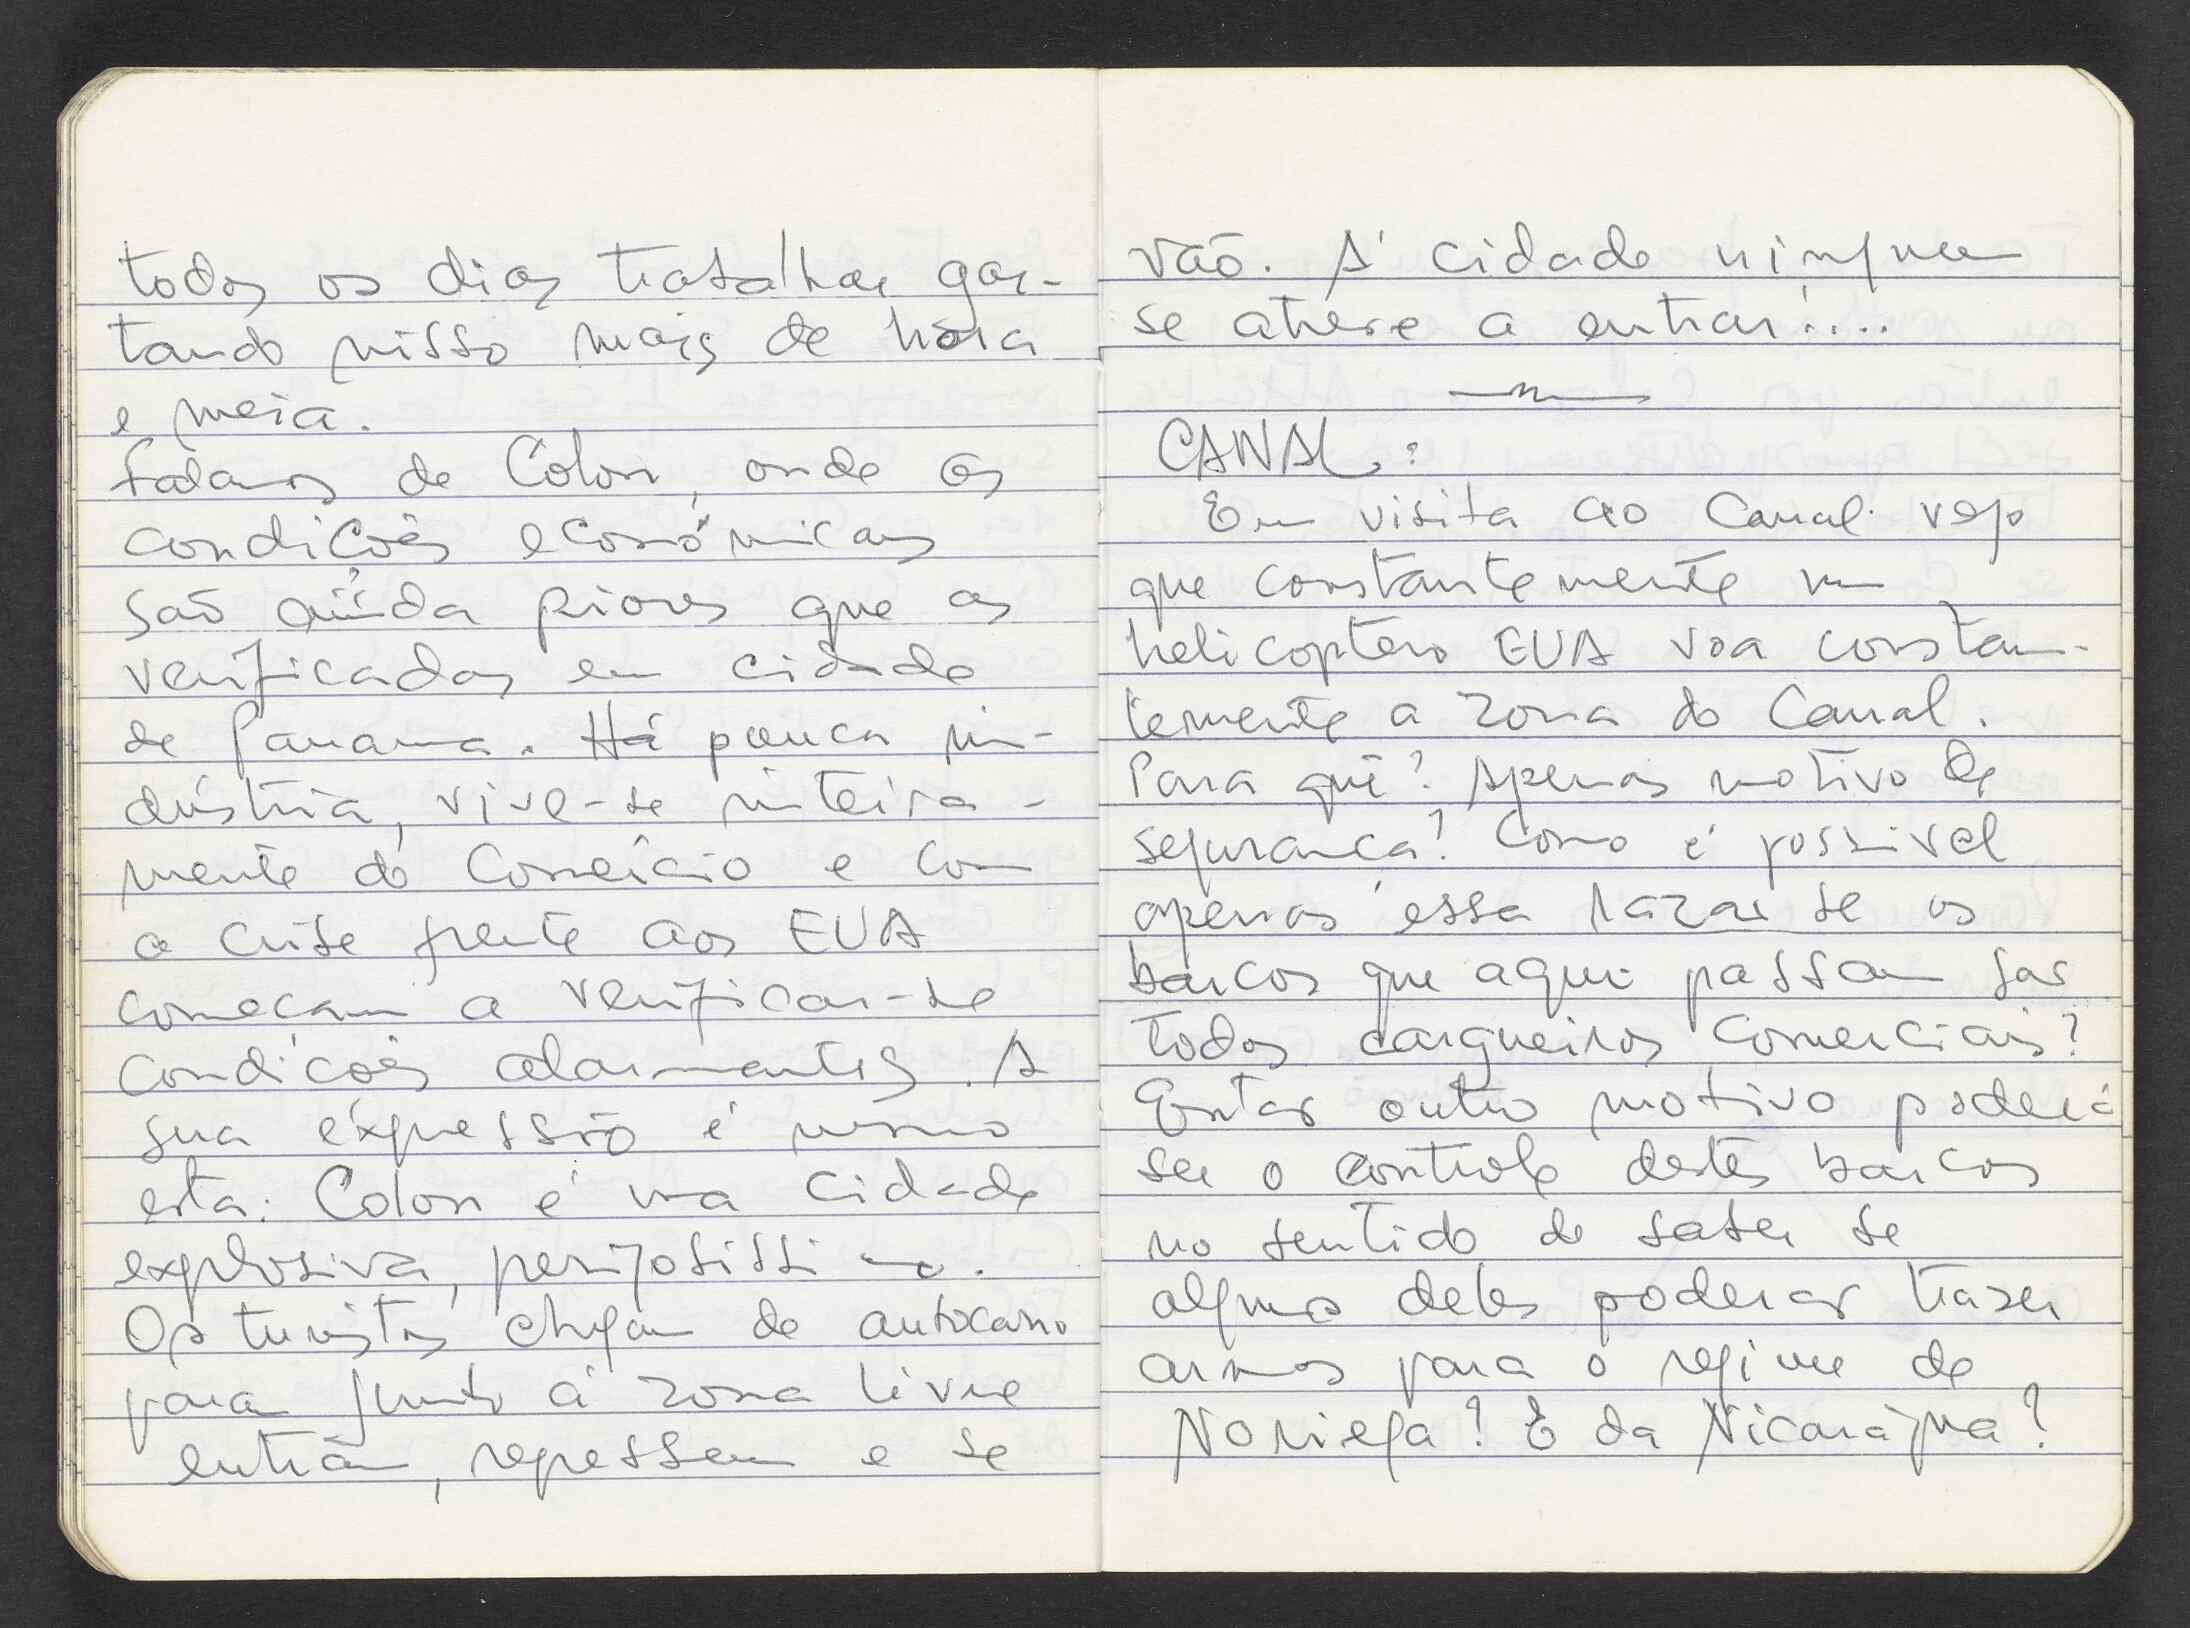 todos os dias trabalhar gas-
tando nisso mais de hora
e meia.
Falamos de Cólon, onde as
condições económicas
são ainda piores que as
verificadas em cidade
de Panama. Há pouca in-
dústria, vive-se inteira-
mente do Comércio e com
a crise frente aos EUA
começam a verificar-se
condições alarmantes. A
sua expressão é mesmo
esta: Colon é uma cidade
explosiva, perigosissima.
Os turistas chegam de autocarro
para junto á zona livre
entram, regressam e se
vão. Á cidade ninguem
se atreve a entrar!...
CANAL:
Em visita ao Canal vejo
que constantemente um
helicoptero EUA voa constan-
temente a zona do Canal.
Para quê? Apenas motivo de
segurança? Como é possivel
apenas essa razão se os
barcos que aqui passam são
todos cargueiros comerciais?
Então outro motivo poderá
ser o controle destes barcos
no sentido de saber se
algums deles poderão trazer
armas para o regime de
Noriega? E da Nicarágua?